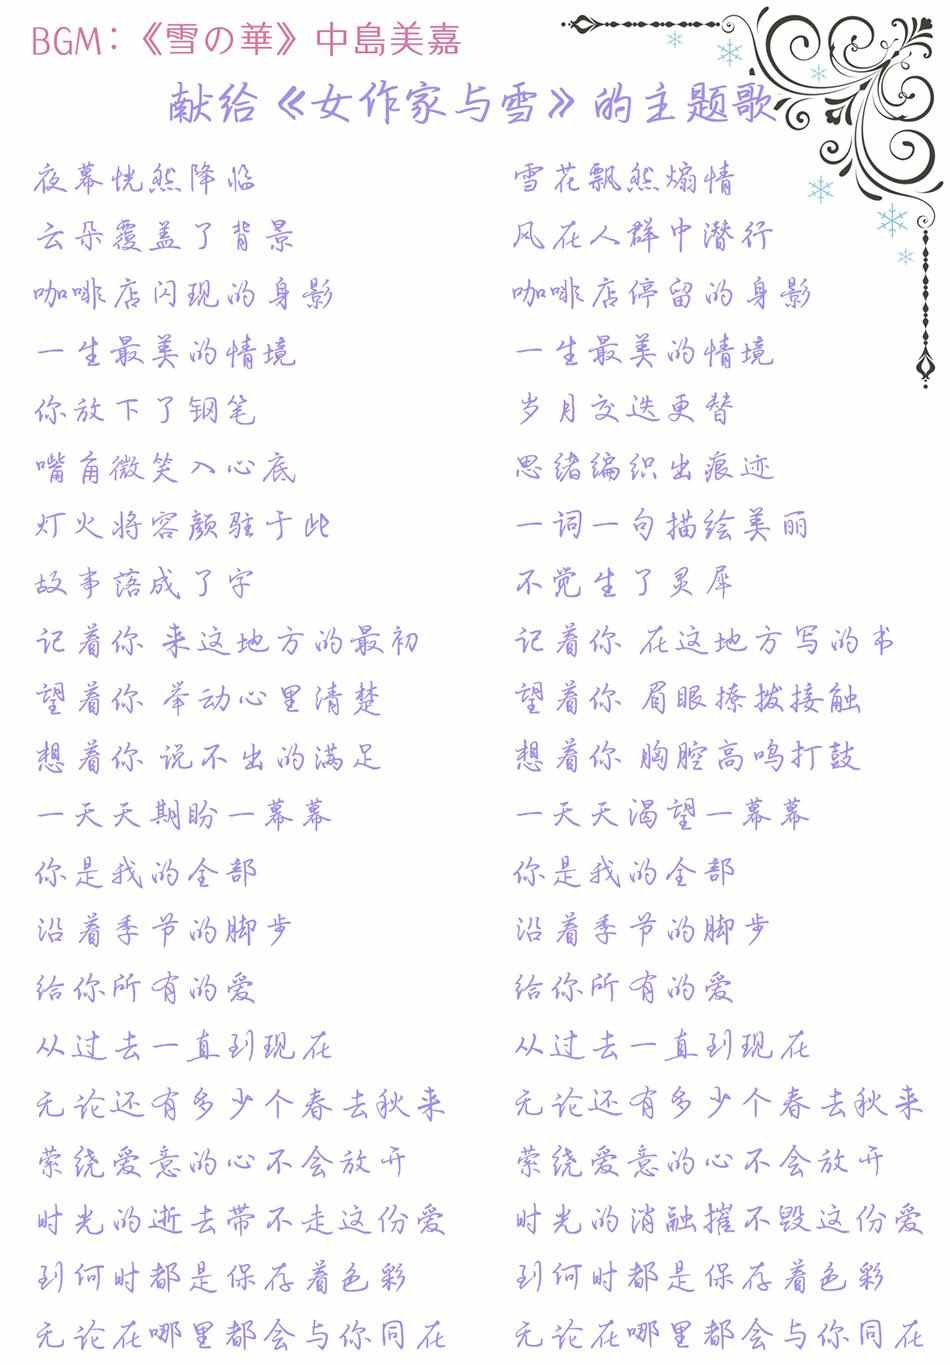 BGM：《雪の華》中島美嘉
献给《女作家与雪》的主题歌
夜幕恍然降临
云朵覆盖了背景
咖啡店闪现的身影
一生最美的情境
你放下了钢笔
嘴角微笑入心底
灯火将容颜驻于此
故事落成了字
记着你 来这地方的最初
望着你 举动心里清楚
想着你 说不出的满足
一天天期盼一幕幕
你是我的全部
沿着季节的脚步
给你所有的爱
从过去一直到现在
无论还有多少个春去秋来
萦绕爱意的心不会放开
时光的逝去带不走这份爱
到何时都是保存着色彩
无论在哪里都会与你同在
雪花飘然煽情
风在人群中潜行
咖啡店停留的身影
一生最美的情境
岁月交迭更替
思绪编织出痕迹
一词一句描绘美丽
不觉生了灵犀
记着你 在这地方写的书
望着你 眉眼撩拨接触
想着你 胸腔高鸣打鼓
一天天渴望一幕幕
你是我的全部
沿着季节的脚步
给你所有的爱
从过去一直到现在
无论还有多少个春去秋来
萦绕爱意的心不会放开
时光的消融摧不毁这份爱
到何时都是保存着色彩
无论在哪里都会与你同在